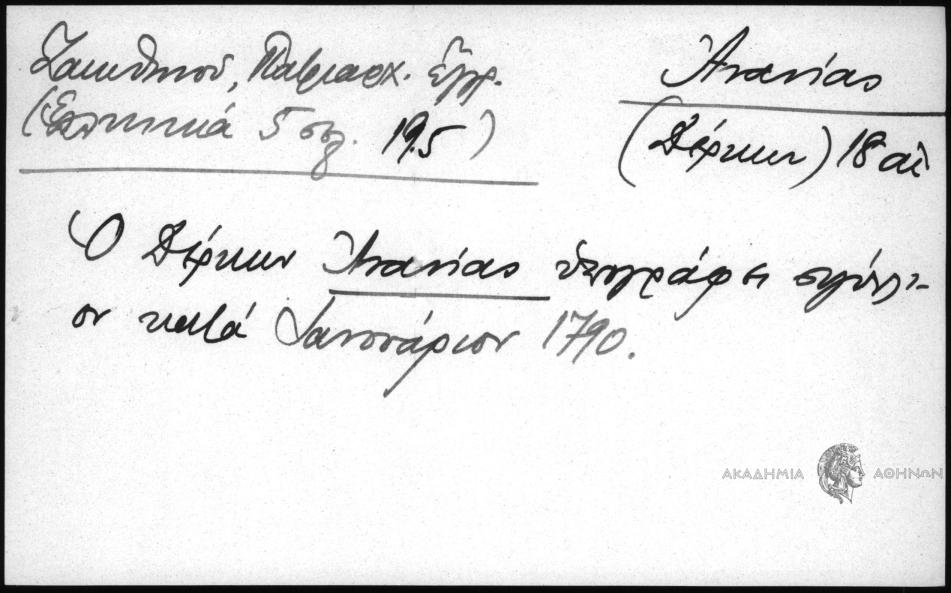 Ζακυθηνοῦ, Πατριαρχ. ἔγγρ.
(Ἑλληνικά 5 σελ. 195)
Ἀνανίας
(Δέρκων) 18 αἰ
Ὁ Δέρκων Ἀνανίας ὑπογράφει σιγίλλι-
ον κατά Ἰανουάριον 1790.
ΑΚΑΔΗΜΙΑ ΑΘΗΝΩΝ